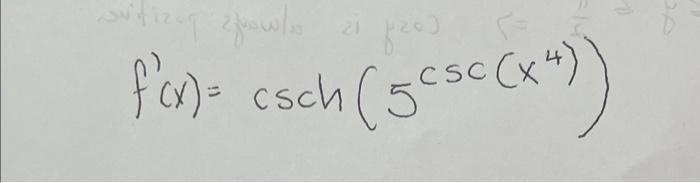 f'(x) = csch(5^csc(x^4))